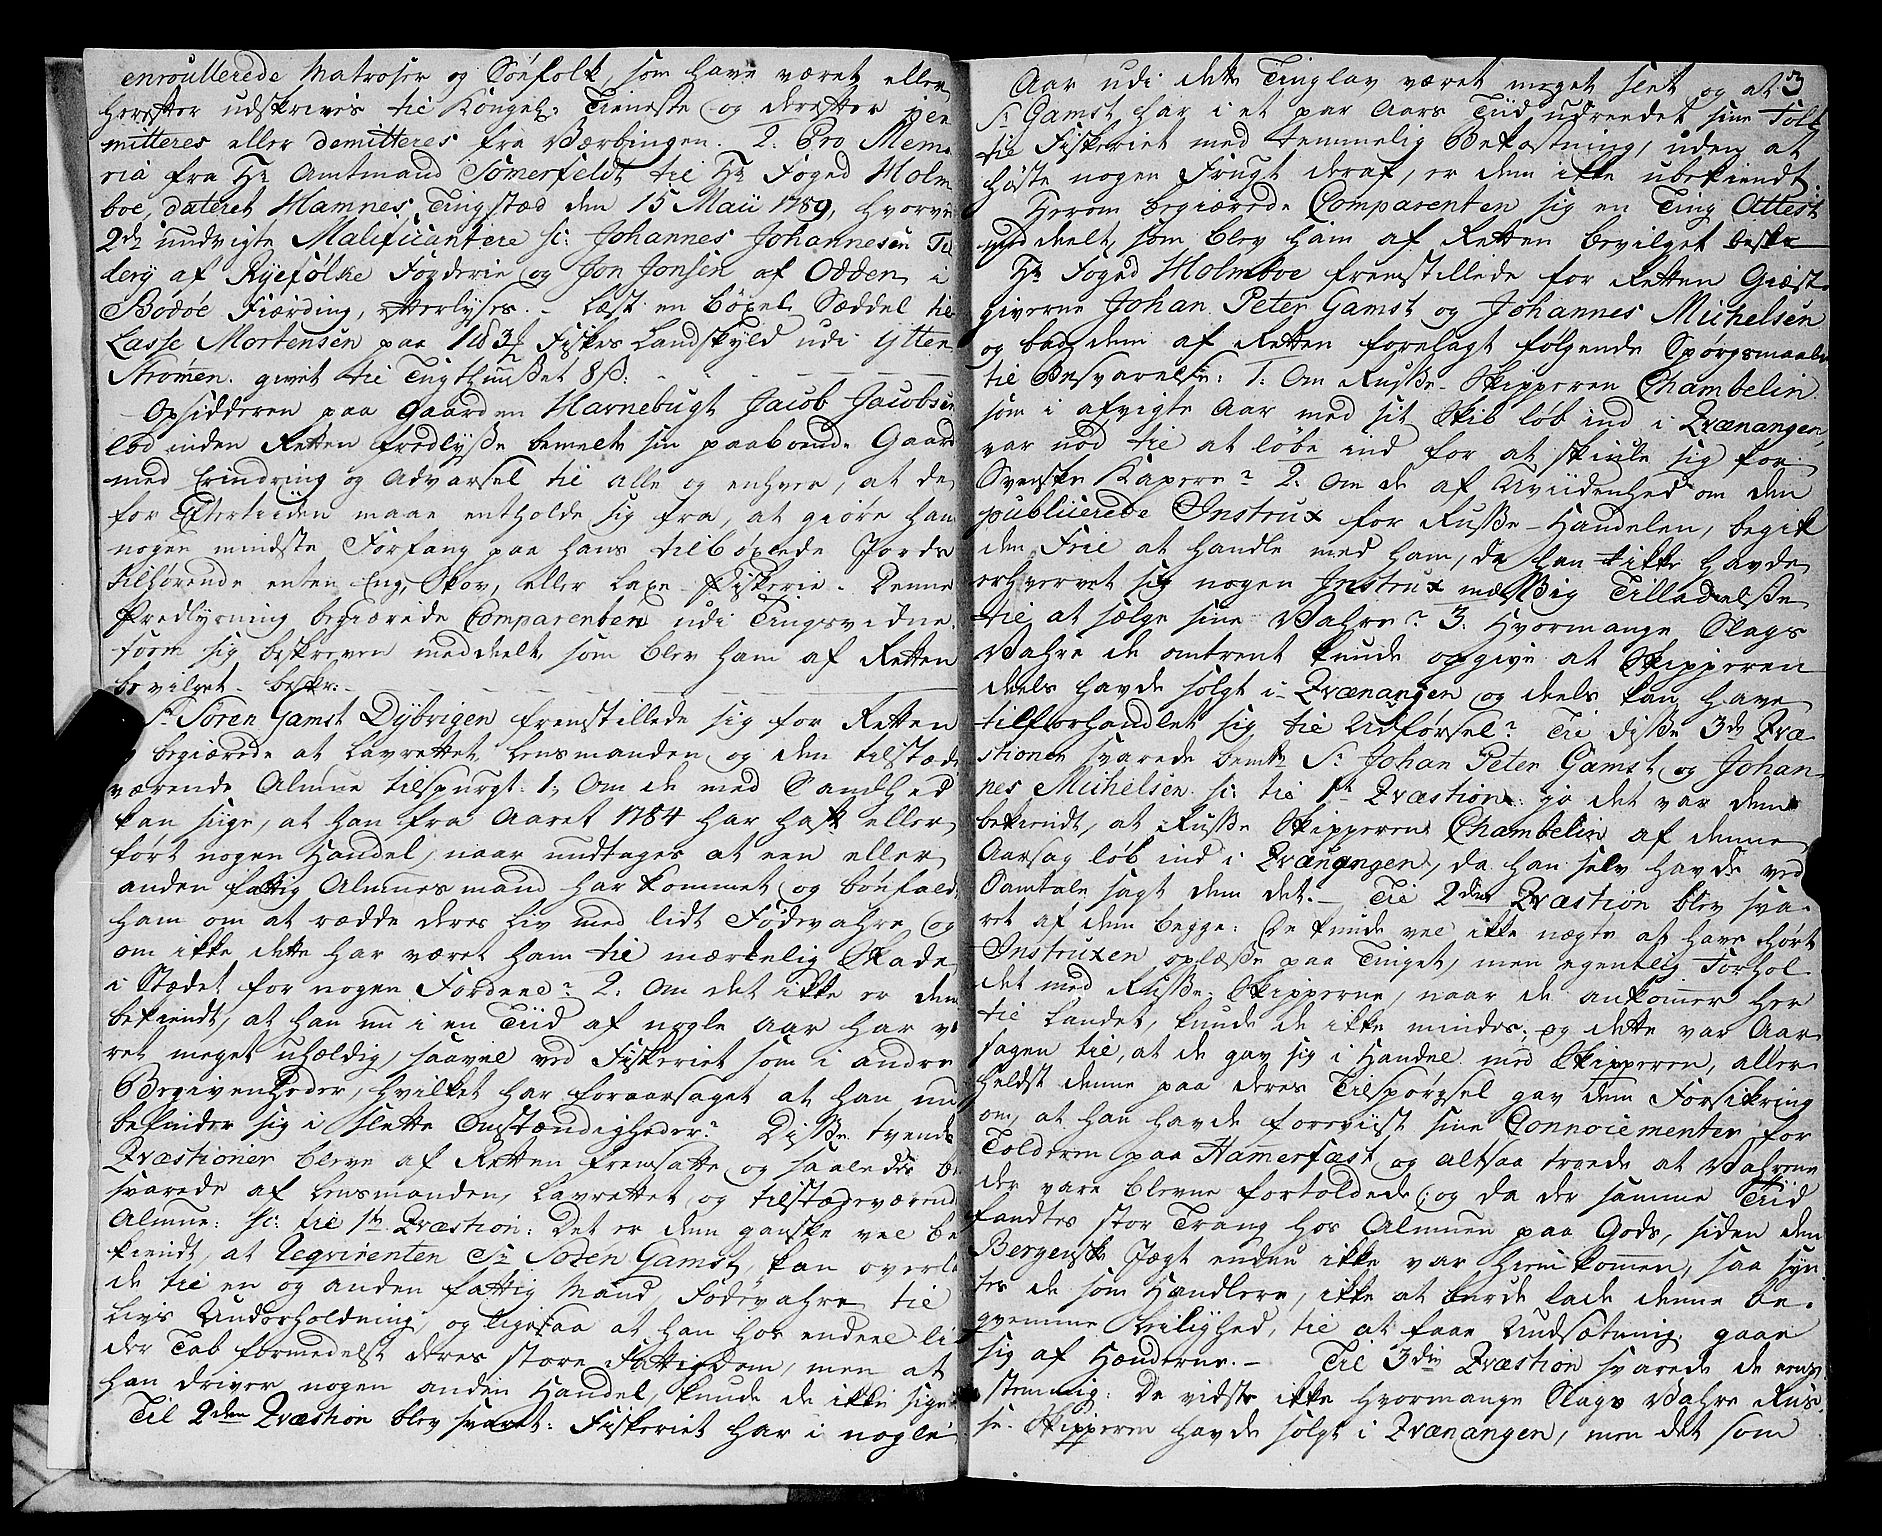 enroullerede Matroser og Söefolk, som have været eller
herefter udskrives til Kongel: Tieneste og derefter per
mitteres eller demitteres fra Værbingen. 2: Pro Memo
ria fra Hr Amtmand Sommerfeldt til Hr Foged Holm
boe, dateret Hamnes Tingstæd den 15 Maii 1789, hvorved
2de undvigte Malificantere sc: Johannes Johannesen
af Ryefölke Fogderie og Jon Jonsen af Odden i
Bodöe Fiærding, efterlyses. - Læst en böxel Sæddel til
Lasse Mortensen paa 1 pd 3 ½ Fiskes Landskyld udi Ytter
Strömen. givet til Tugthuuset 8 ß: -
Opsidderen paa Gaarden Havnebugt Jacob Jacobsen
lod inden Retten fredlyse bemelte sin paaboende Gaard
med Erindring og Advarsel til alle og enhver, at de
for Eftertiiden maae entholde sig fra, at giöre ham
nogen mindste Forfang paa hans tilböxlede Jords
tilhörende enten Eng, Skov, eller Laxe-Fiskerie. Denne
Fredlysning begiærede Comparenten udi Tingsvidne
form sig beskreven meddeelt, som blev ham af Retten
bevilget. beskr: -
Sr Sören Gamst Dÿbvigen fremstillede sig for Retten
begiærede at Lavrettet, Lensmanden og den tilstæde
værende Almue tilspurgt: 1; Om de med Sandhed
kan sige, at han fra Aaret 1784 har haft eller
fört nogen Handel, naar undtages at een eller
anden fattig Almues mand har kommet og bönfaldt
ham om at rædde deres Liv med lidt Födevahre og
om ikke dette har været ham til mærkelig Skade
i Stædet for nogen Fordeel? 2: Om det ikke er dem
bekiendt, at han nu i en Tiid af nogle Aar har væ
ret meget uheldig saavel ved Fiskeriet som i andre
Begivenheder, hvilket har foraarsaget at han nu
befinder sig i slette Omstændigheder? Disse tvende
Qvæstioner bleve af Retten fremsatte og saaledes be
svarede af Lensmanden, Lavrettet og tilstædeværende
Almue: sc: til 1te Qvæstion: Det er dem ganske vel be
kiendt, at Reqvirenten Sr Sören Gamst, kan overla
de til en og anden fattig Mand, Födevahre til
Livs Underholdning, og ligesaa at han hos endeel li
der Tab formedelst deres store Fattigdom, men at
han driver nogen anden Handel, kunde de ikke sige.
Til 2den Qvæstion blev svaret: Fiskeriet har i nogle
Aar udi dette Tinglav været meget slet og at
Sr Gamst har i et par Aars Tiid udreedet sine Folk
til Fiskeriet med temmelig Bekostning, uden at
höste nogen Frugt deraf, er dem ikke ubekiendt.
Herom begiærede Comparenten sig en Ting Attest
meddeelt, som blev ham af Retten bevilget beskr
Hr Foged Holmboe fremstillede for Retten Giæst
giverne Johan Peter Gamst og Johannes Michelsen
og bad dem af Retten forelagt fölgende Spörgsmaale
til Besvarelse: 1: Om Russe-Skipperen Chambelin
som i afvigte Aar med sit Skib löb ind i Qvænangen,
var nöd til at löbe ind for at skiule sig for
Svenske Kapere? 2: Om de af Uviidenhed om den
publicerede Instrux for Russe-Handelen, begik
den Feil at handle med ham, da han ikke havde
erhvervet sig nogen Instrux mæssig Tilladelse
til at sælge sine Vahre? 3: Hvormange Slags
Vahre de omtrent kunde opgive at Skipperen
deels havde solgt i Qvænangen og deels kan have
tilforhandlet sig til Udförsel? Til disse 3de Qvæ
stioner svarede bemte Sr Johan Peter Gamst og Johan
nes Michelsen sc: til 1te Qvæstion: jo det var dem
bekiendt, at Russe Skipperen Chambelin af denne
Aarsag löb ind i Qvænangen, da han selv havde ved
Samtale sagt dem det. - Til 2den Qvæstion blev sva
ret af dem begge: De kunde vel ikke nægte at have hört
Instruxen oplæse paa Tinget, men egentlig Forhol
det med Russe-Skipperne, naar de ankommer her
til Landet, kunde de ikke mindes; og dette var Aar
sagen til, at de gav sig i Handel med Skipperen, aller
heldst denne paa deres Tilspörgsel gav dem Forsikring
om, at han havde foreviist sine Connoicementer for
Tolderen paa Hamerfæst og altsaa troede at Vahrene
der vare blevne fortoldede; og da der samme Tiid
fandtes stor Trang hos Almuen paa Gods, siden den
Bergenske Jægt endnu ikke var hiemkommen, saa syn
tes de som Handlere, ikke at burde lade denne be
qvemme Leilighed, til at faae Undsætning, gaae
sig af Hænderne. - Til 3die Qvæstion svarede de eens
stemmig: De vidste ikke hvormange Slags Vahre Rus
se-Skipperen havde solgt i Qvænangen, men det som